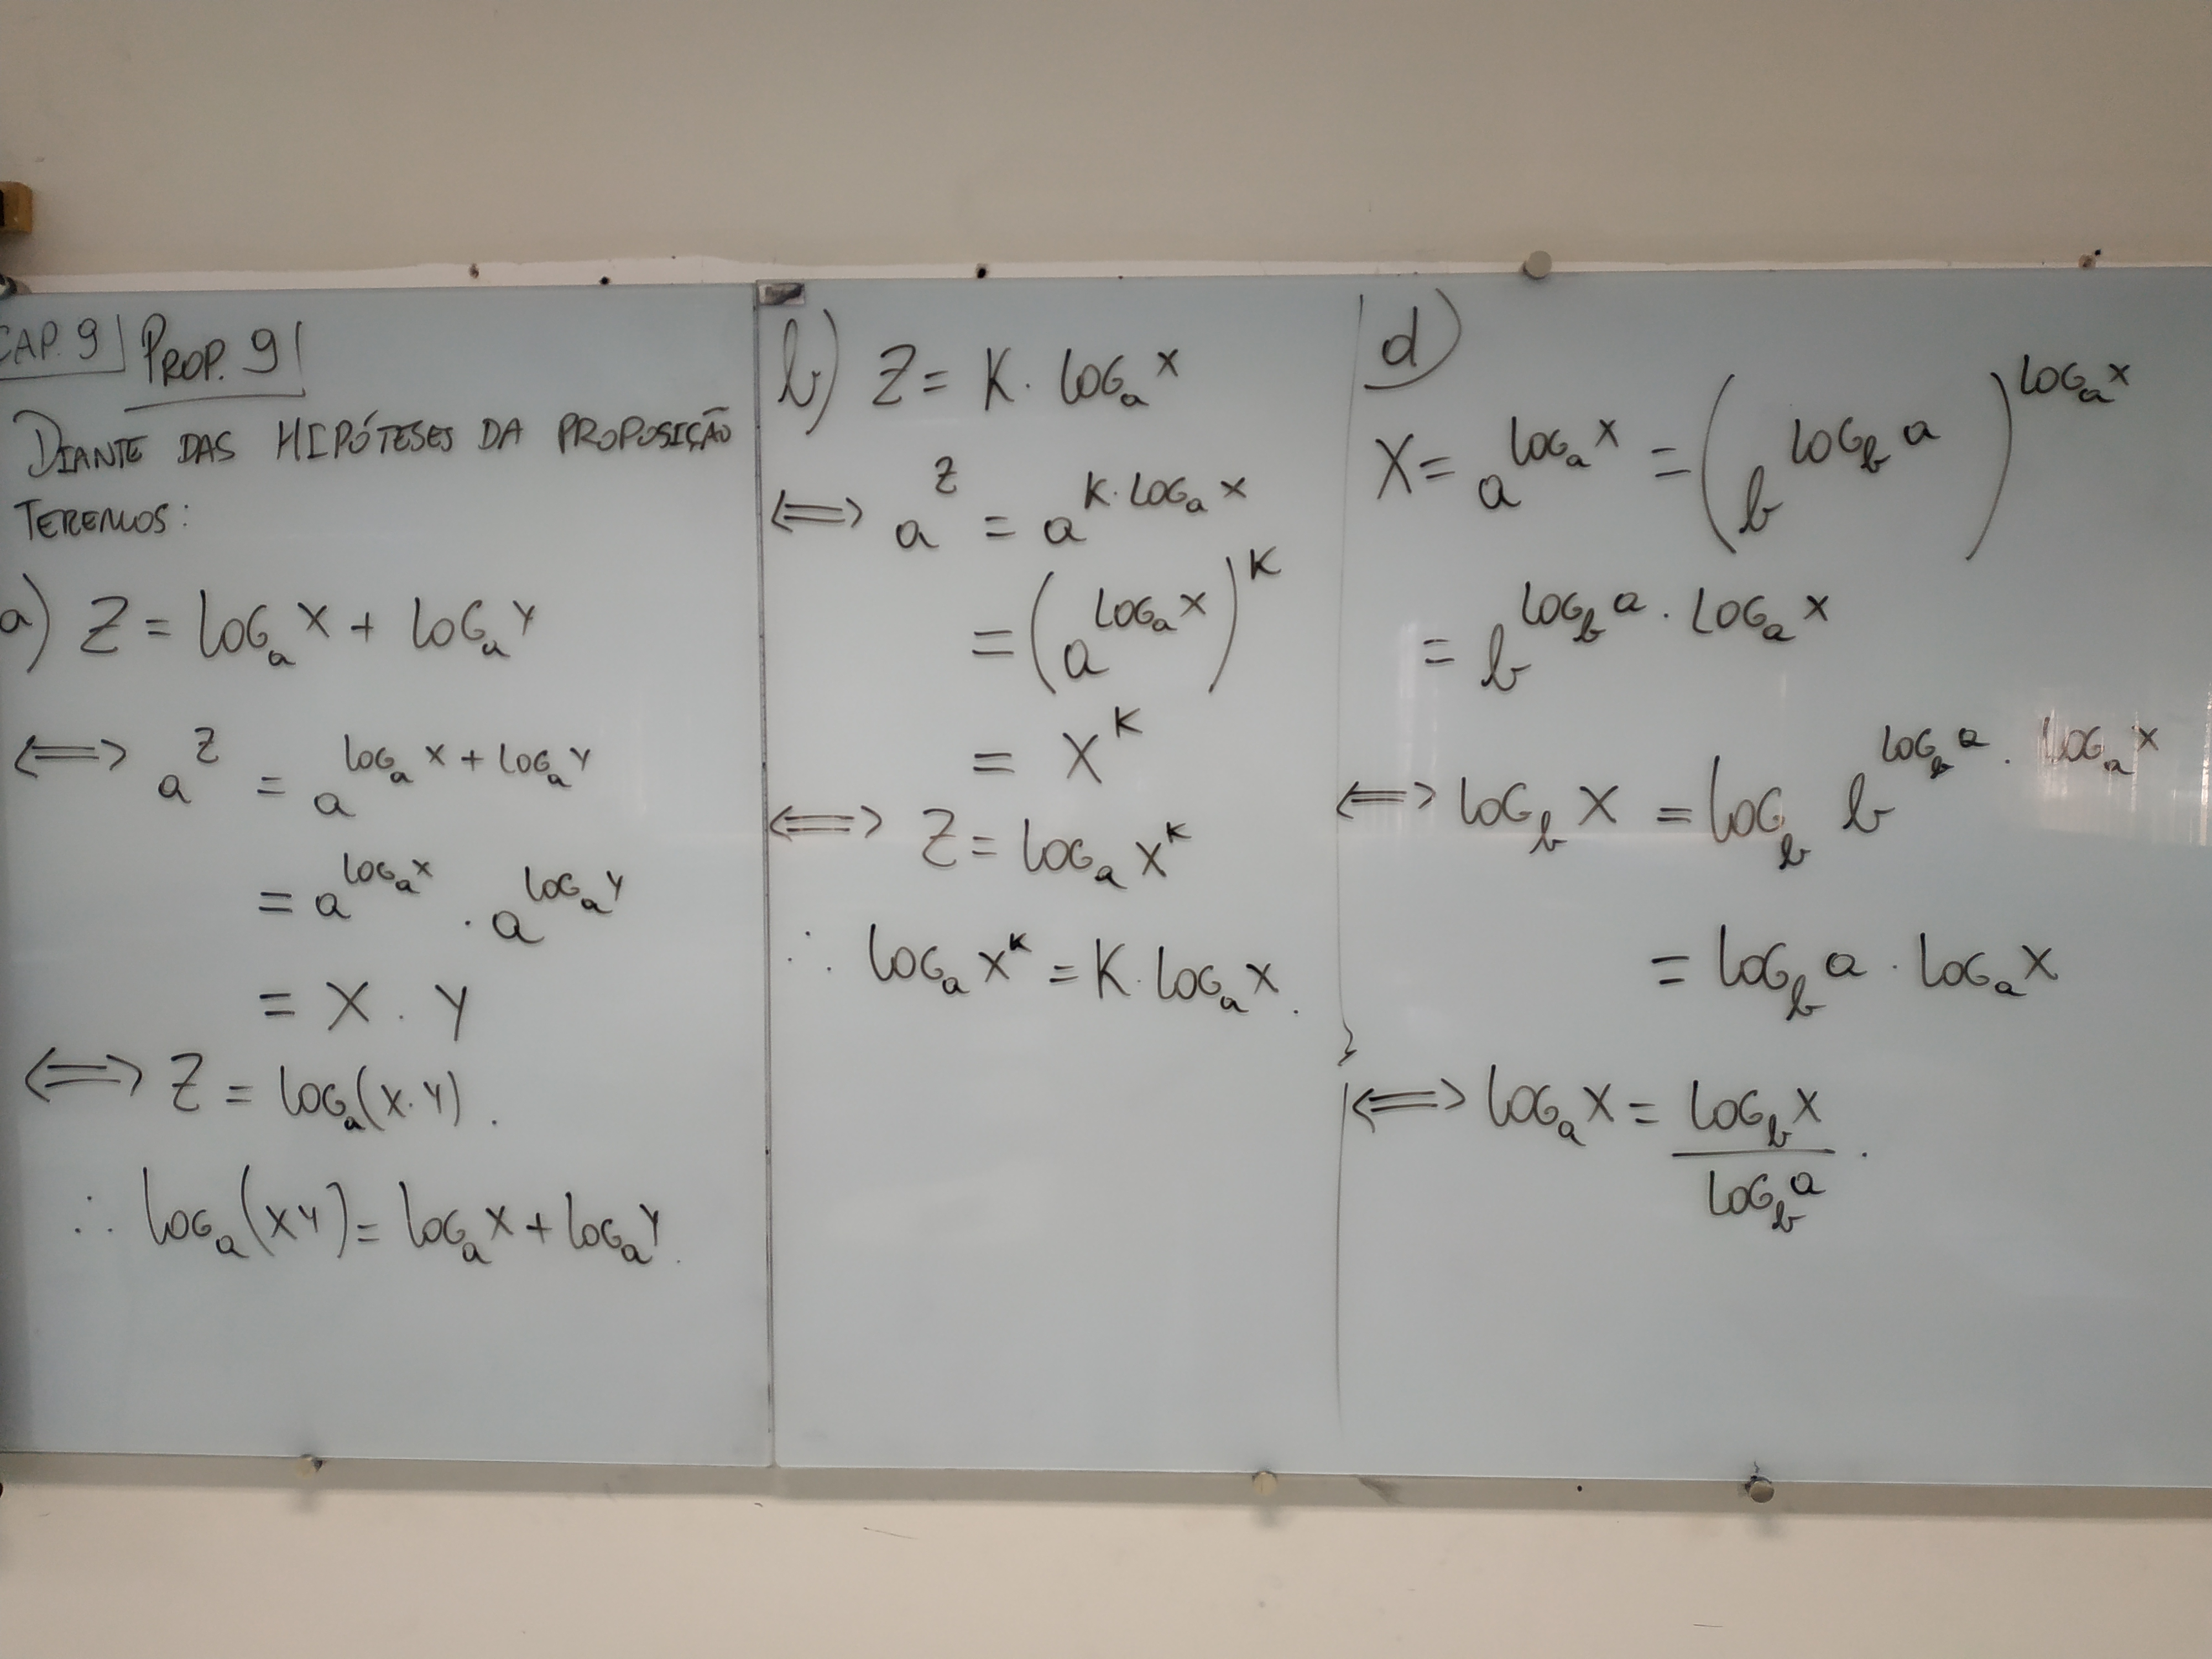 CAP. 9 PROP. 9
DIANTE DAS HIPÓTESES DA PROPOSIÇÃO
TEREMOS:
a) Z = log_a X + log_a Y
⟺ a^Z = a^(log_a X + log_a Y)
= a^(log_a X) · a^(log_a Y)
= X · Y
⟺ Z = log_a (X·Y).
∴ log_a (XY) = log_a X + log_a Y.
b) Z = K · log_a X
⟺ a^Z = a^(K · log_a X)
= (a^(log_a X))^K
= X^K
⟺ Z = log_a X^K
∴ log_a X^K = K · log_a X.
d)
X = a^(log_a X) = (b^(log_b a))^(log_a X)
= b^(log_b a · log_a X)
⟺ log_b X = log_b b^(log_b a · log_a X)
= log_b a · log_a X
⟺ log_a X = log_b X / log_b a.